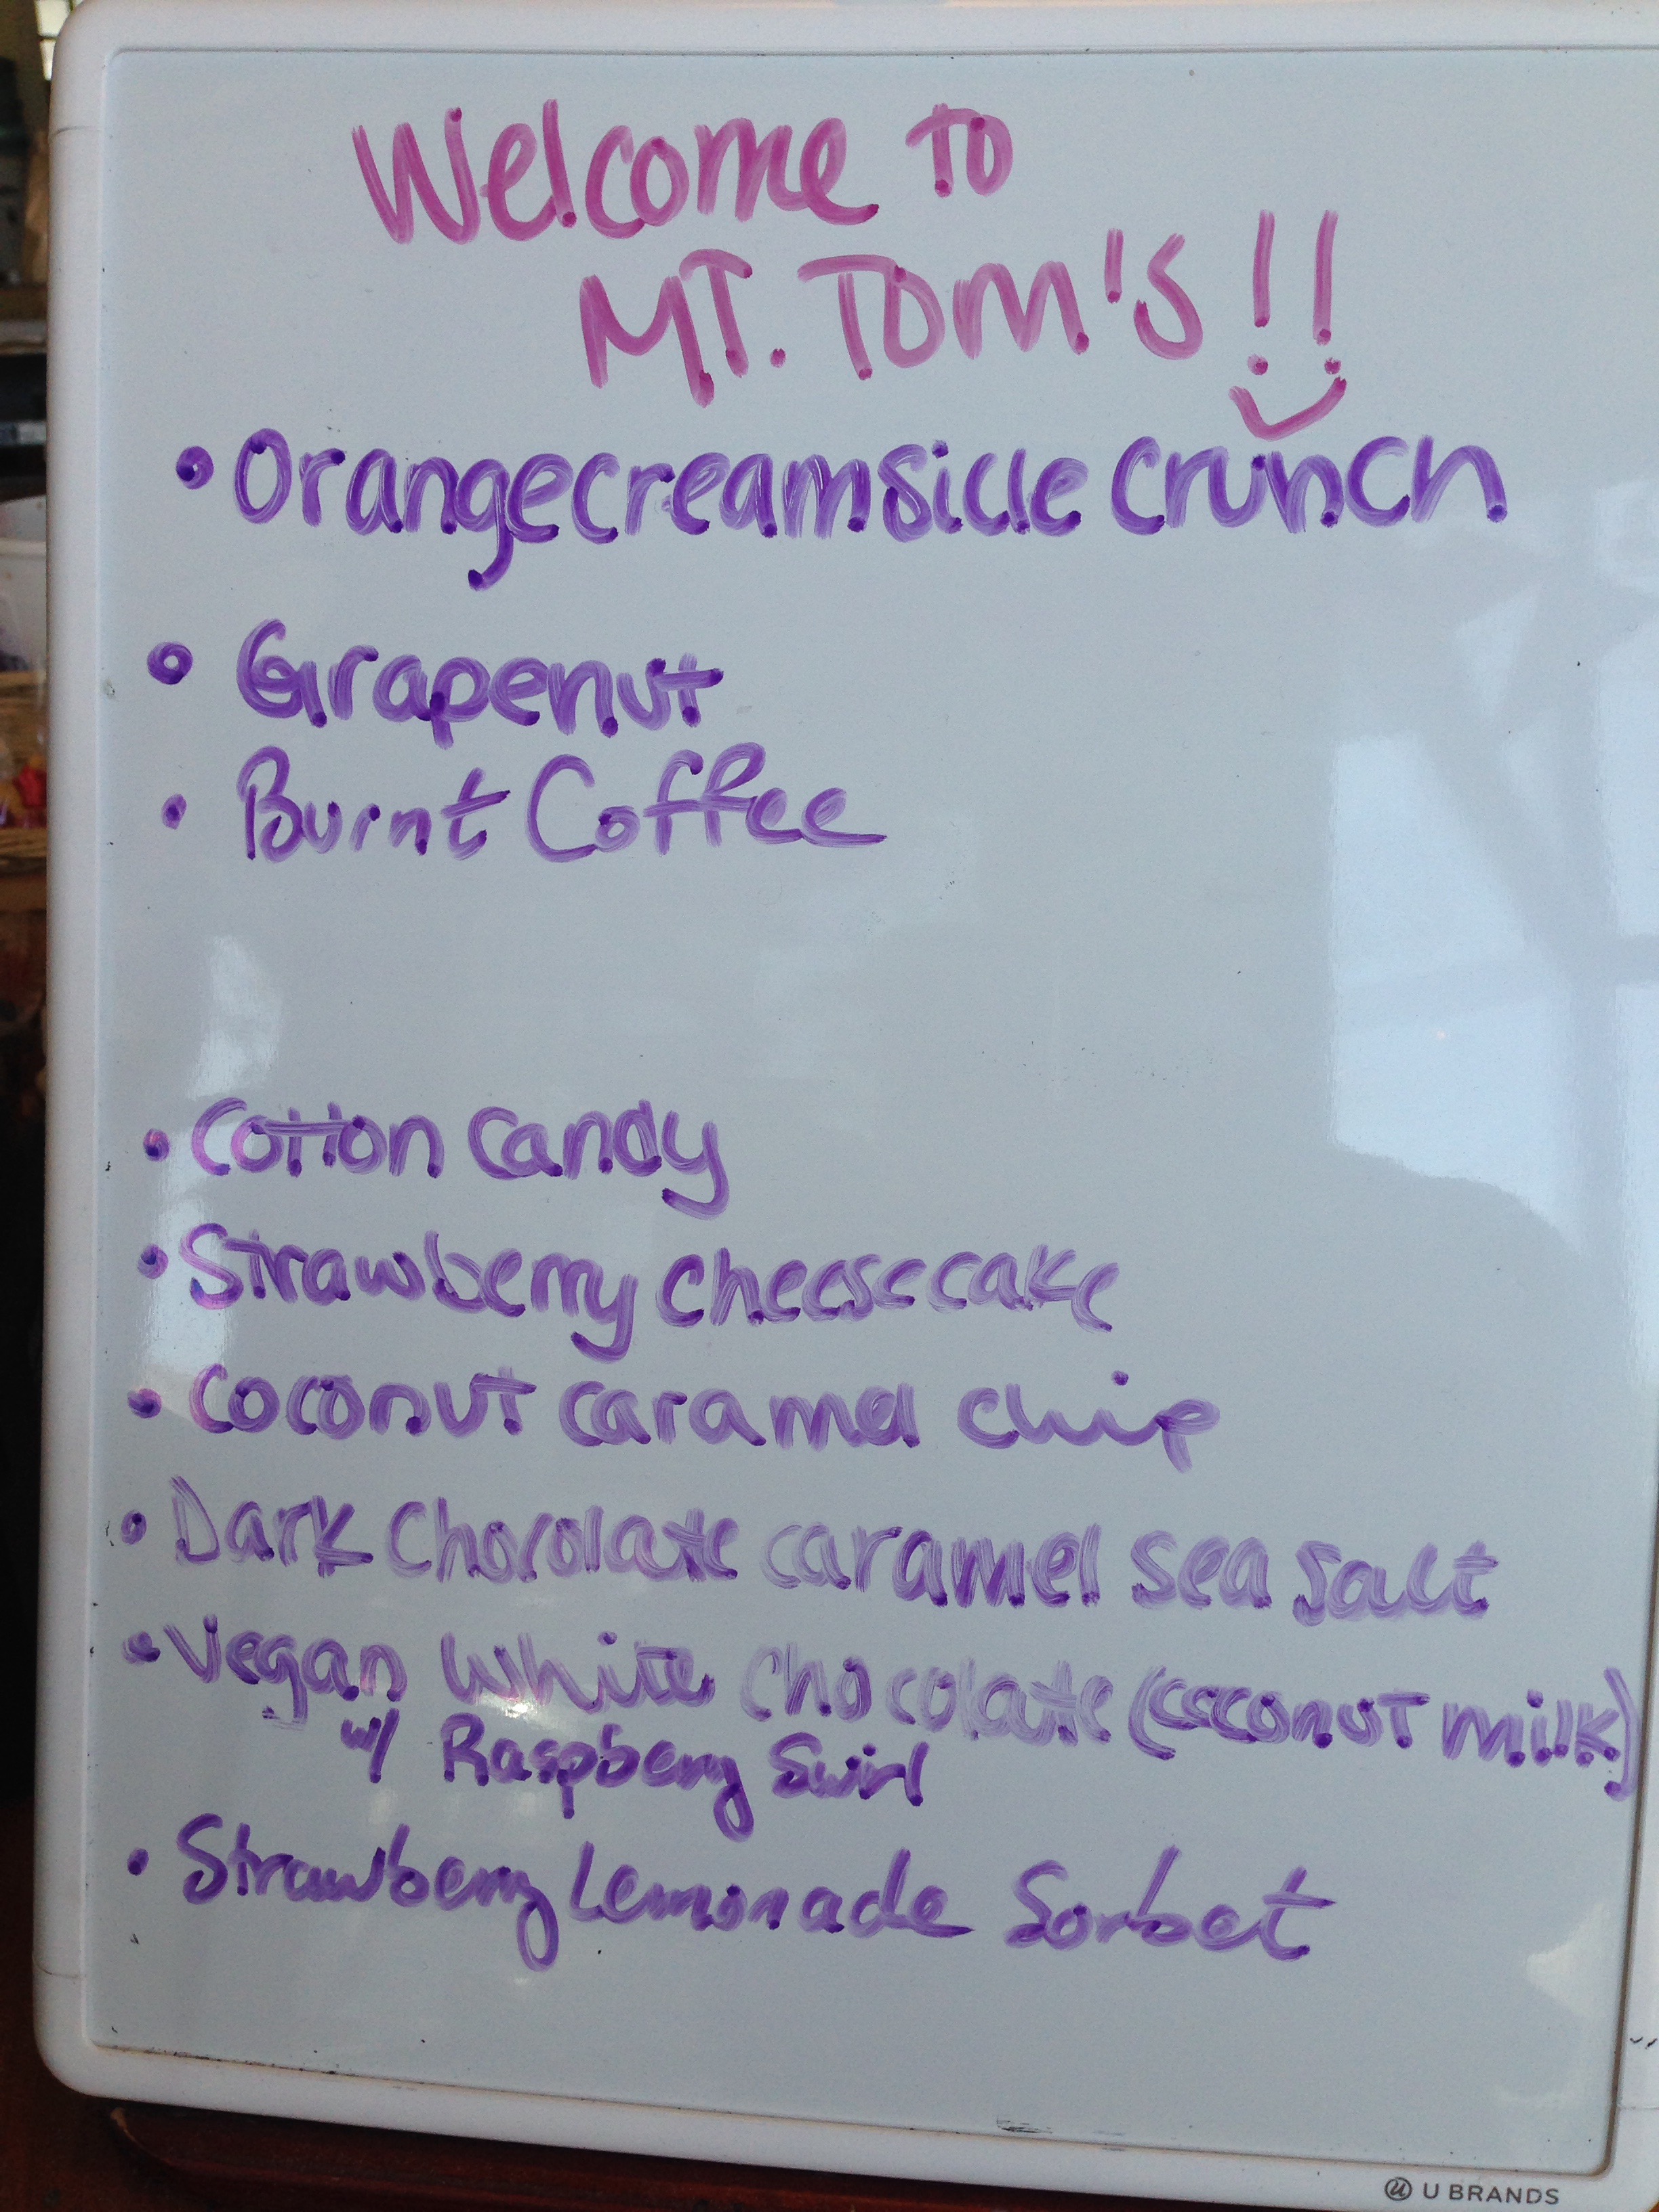 Welcome to
MT. Tom's!!
• Orangecreamsicle crunch
• Grapenut
• Burnt Coffee
• Cotton candy
• Strawberry cheesecake
• coconut caramel chip
• Dark Chocolate caramel sea salt
• Vegan White Chocolate (coconut milk)
w/ Raspberry Swirl
• Strawberry Lemonade Sorbet
U BRANDS